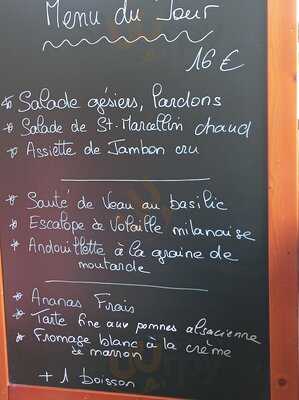 Menu du Jour
16 €
* Salade gésiers, lardons
* Salade de St-Marcellin chaud
* Assiette de Jambon cru
* Sauté de Veau au basilic
* Escalope de Volaille milanaise
* Andouillette à la graine de
moutarde
* Ananas Frais
* Tarte fine aux pommes alsacienne
* Fromage blanc à la crème
de marron
+ 1 boisson